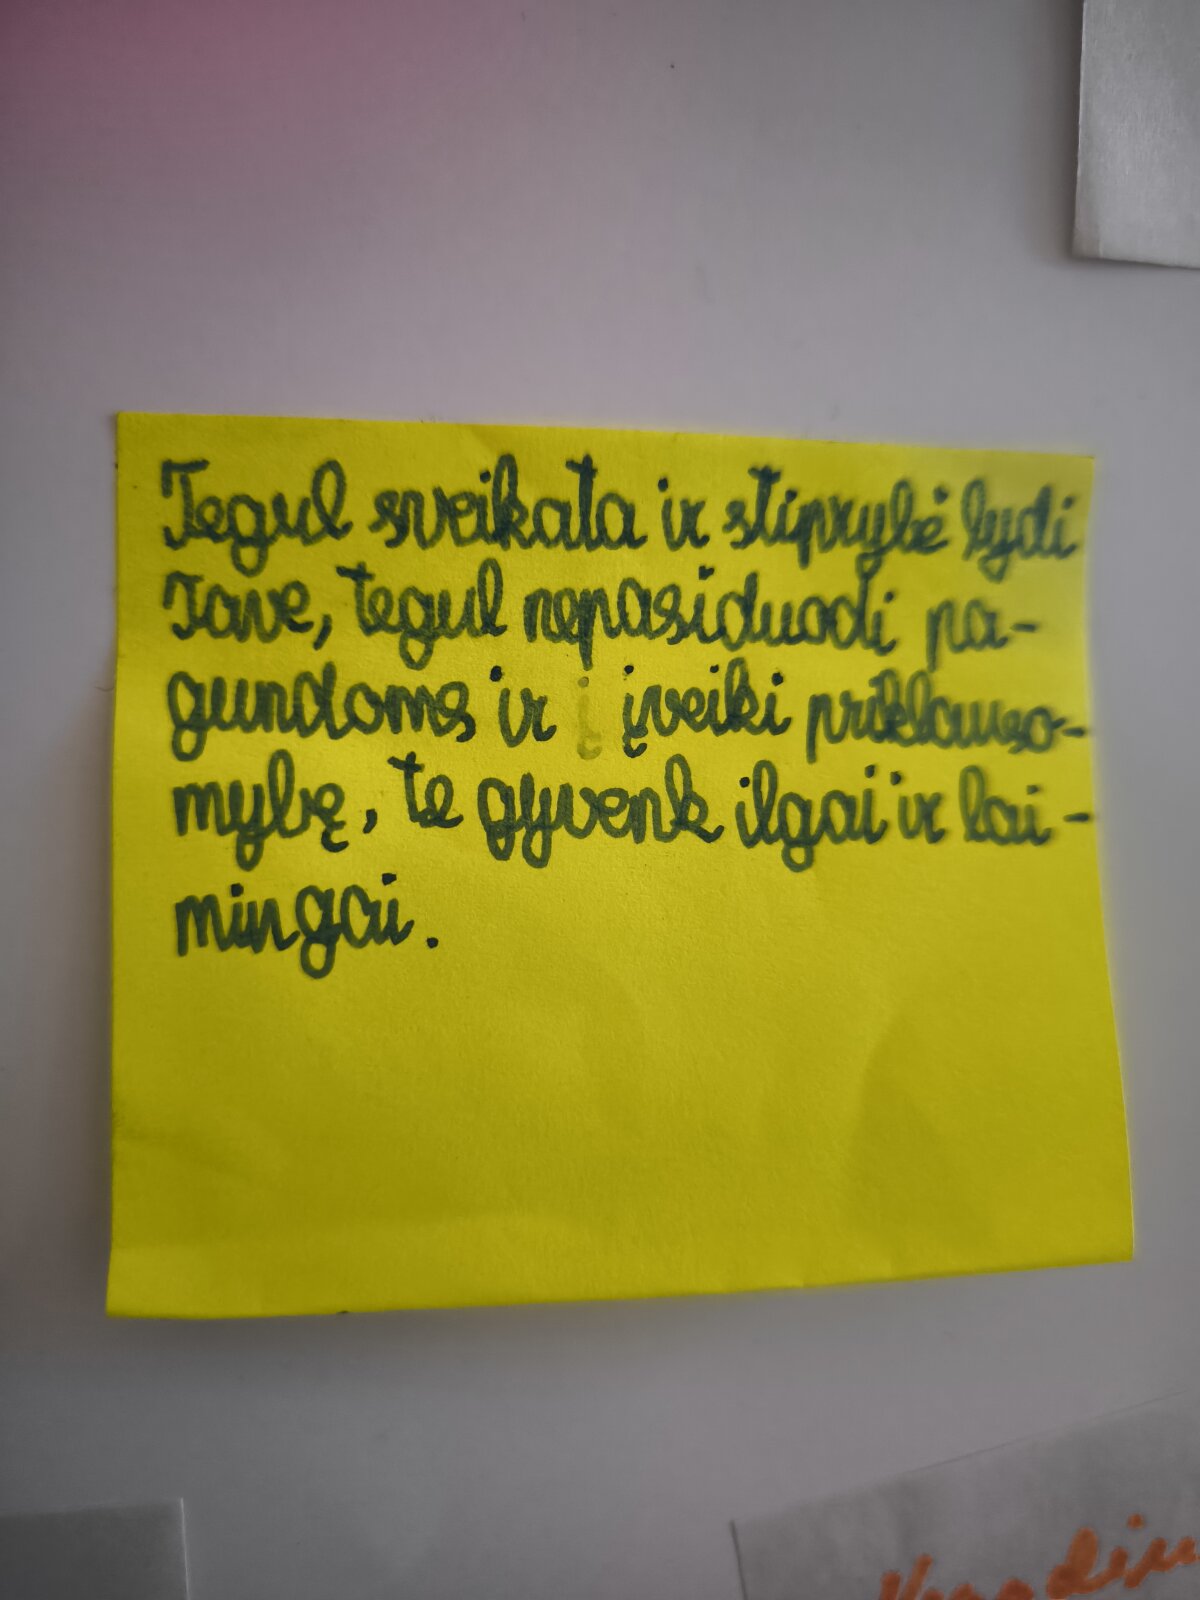 Tegul sveikata ir stiprybė lydi
Tave, tegul nepasiduodi pa-
gundoms ir į įveiki priklauso-
mybę, te gyvenk ilgai ir lai-
mingai.